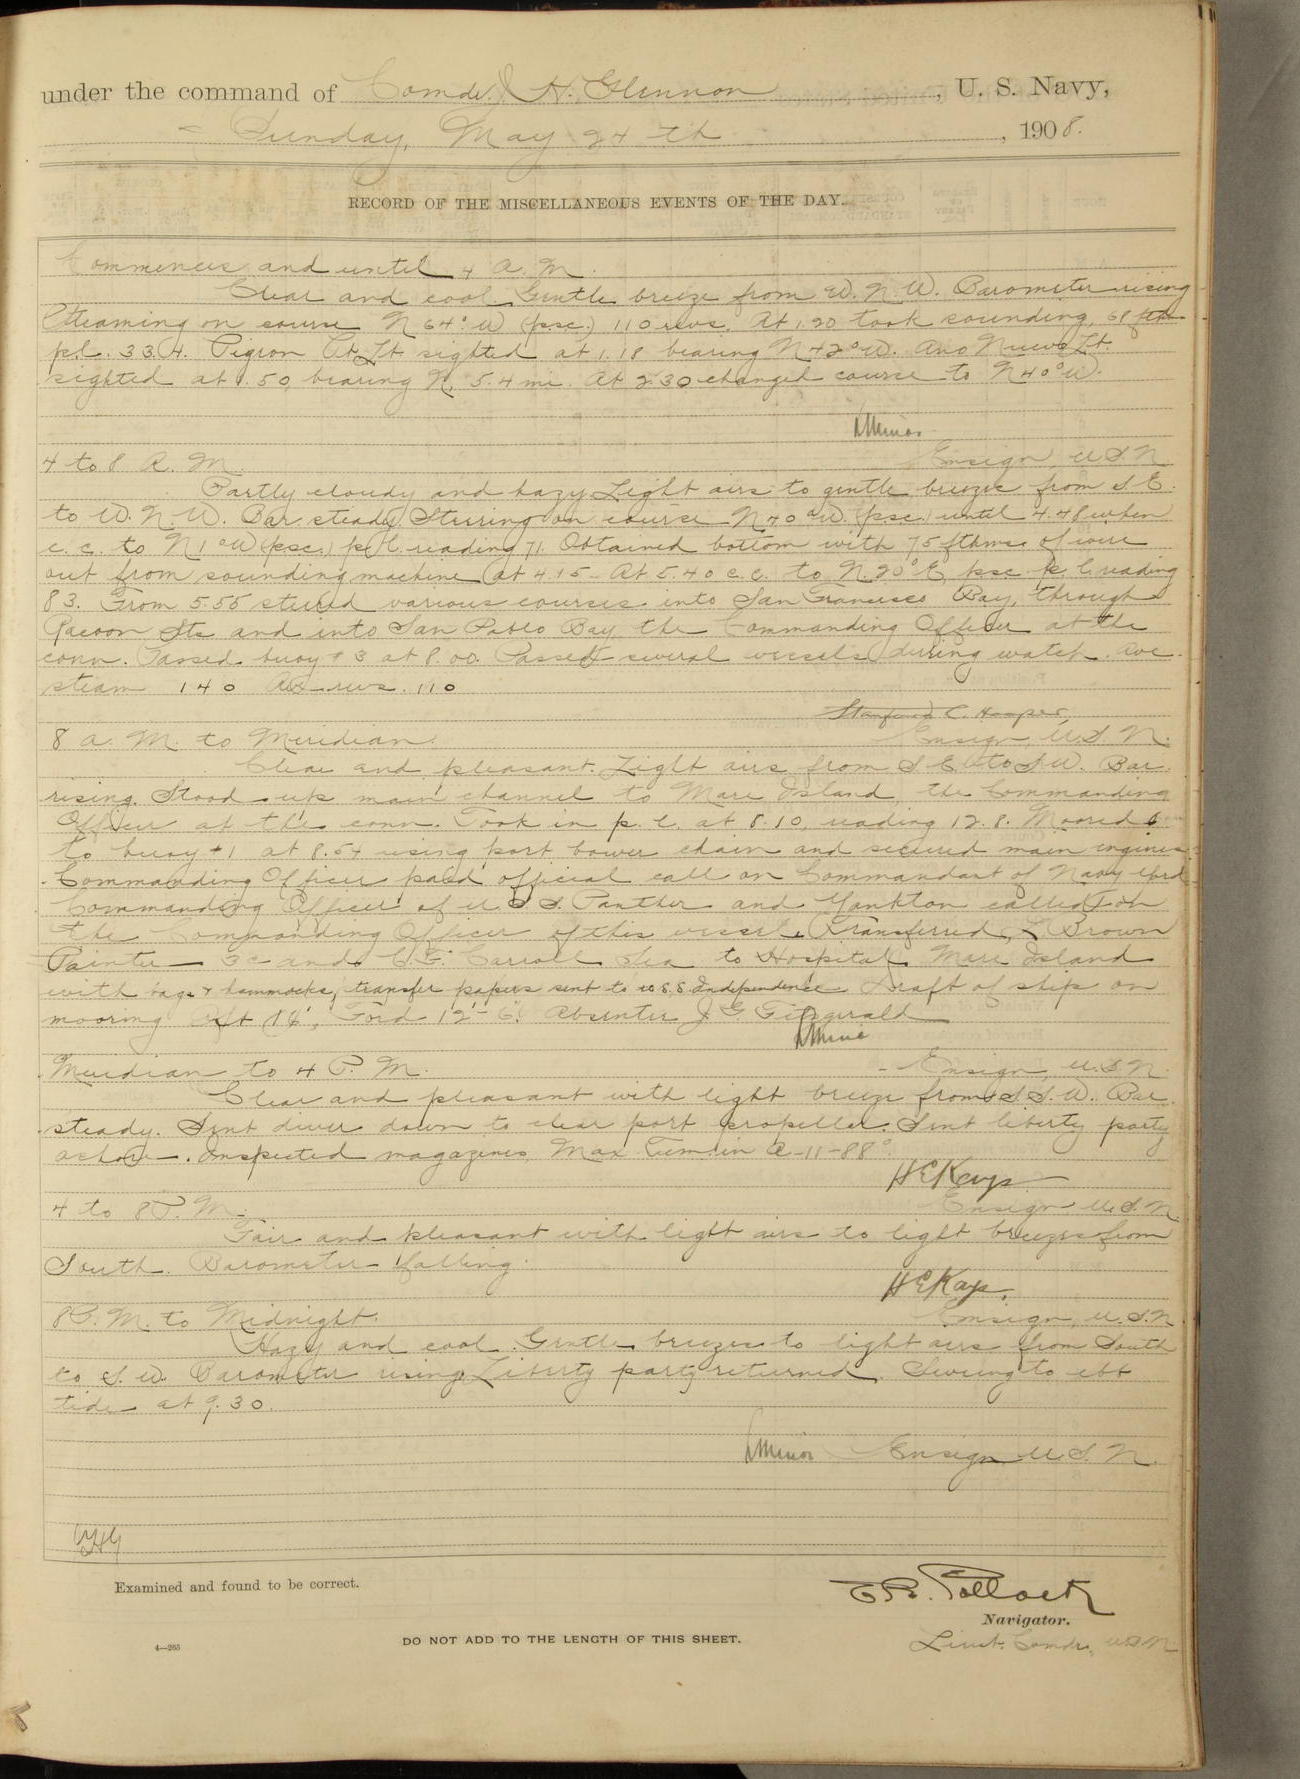 under the command of Comdr. J. H. Glennon, U. S. Navy,
Sunday, May 24th, 1908.
RECORD OF THE MISCELLANEOUS EVENTS OF THE DAY.
Commences and until 4 A. M.
Clear and cool. Gentle breeze from W. N. W. Barometer rising
Steaming on course N 64° W (psc.) 110 revs. At 1.20 took sounding, 68 fthms
p.l. 33.4. Pigeon Pt. Lt. sighted at 1.18 bearing N 42° W. Ano Nuevo Lt.
sighted at 1.50, bearing N. 5.4 mi. At 2.30 changed course to N 40° W.
L Minor
Ensign, U S N
4 to 8 A. M.
Partly cloudy and hazy. Light airs to gentle breeze from S. E.
to W. N. W. Bar. steady. Steering on course N 40° W. (psc.) until 4.48 when
c. c. to N 1° W (psc.) p. l. reading 71. Obtained bottom with 75 fthms. of wire
out from sounding machine at 4.15. At 5.40 c. c. to N. 20° E. psc p. l. reading
83. From 5.55 steered various courses into San Francisco Bay, through
Racoon Sts and into San Pablo Bay, the Commanding Officer at the
conn. Passed buoy # 3 at 8.00. Passed several vessels during watch. Ave.
steam 140 Ave revs. 110
Stanford C. Hooper,
Ensign, U. S. N.
8 a. M. to Meridian.
Clear and pleasant. Light airs from S. E. to S. W. Bar.
rising. Stood up main channel to Mare Island, the Commanding
Officer at the conn. Took in p. l. at 8.10, reading 12.8. Moored
to buoy #1 at 8.54 using port bower chain and secured main engines
Commanding Officer paid official call on Commandant of Navy Yard
Commanding Officer of U. S. S. Panther and Yankton called on
the Commanding Officer of this vessel. Transferred, Brown
Painter 3c and C. E. Carroll Sea to Hospital, Mare Island
with bags & hammocks, transfer papers sent to U. S. S. Independence. Draft of ship on
mooring Aft 16', Ford 12'-6". Absentee J. G. Fitzgerald
L Minor
Ensign, U. S. N.
Meridian to 4 P. M.
Clear and pleasant with light breeze from S. S. W. Bar.
steady. Sent diver down to clear port propeller. Sent liberty party
ashore. Inspected magazines, Max. Tem. in A-11-88°
H E Kays
Ensign U. S. N.
4 to 8 P. M.
Fair and pleasant with light airs to light breezes from
South. Barometer falling.
H E Kays.
Ensign, U. S. N
8 P. M. to Midnight.
Hazy and cool. Gentle breezes to light airs from South
to S. W. Barometer rising. Liberty party returned. Swung to ebb
tide at 9.30.
L Minor Ensign U. S. N.
Examined and found to be correct.
E R. Pollock
Navigator.
Lieut. Comdr., U S N
4—265
DO NOT ADD TO THE LENGTH OF THIS SHEET.